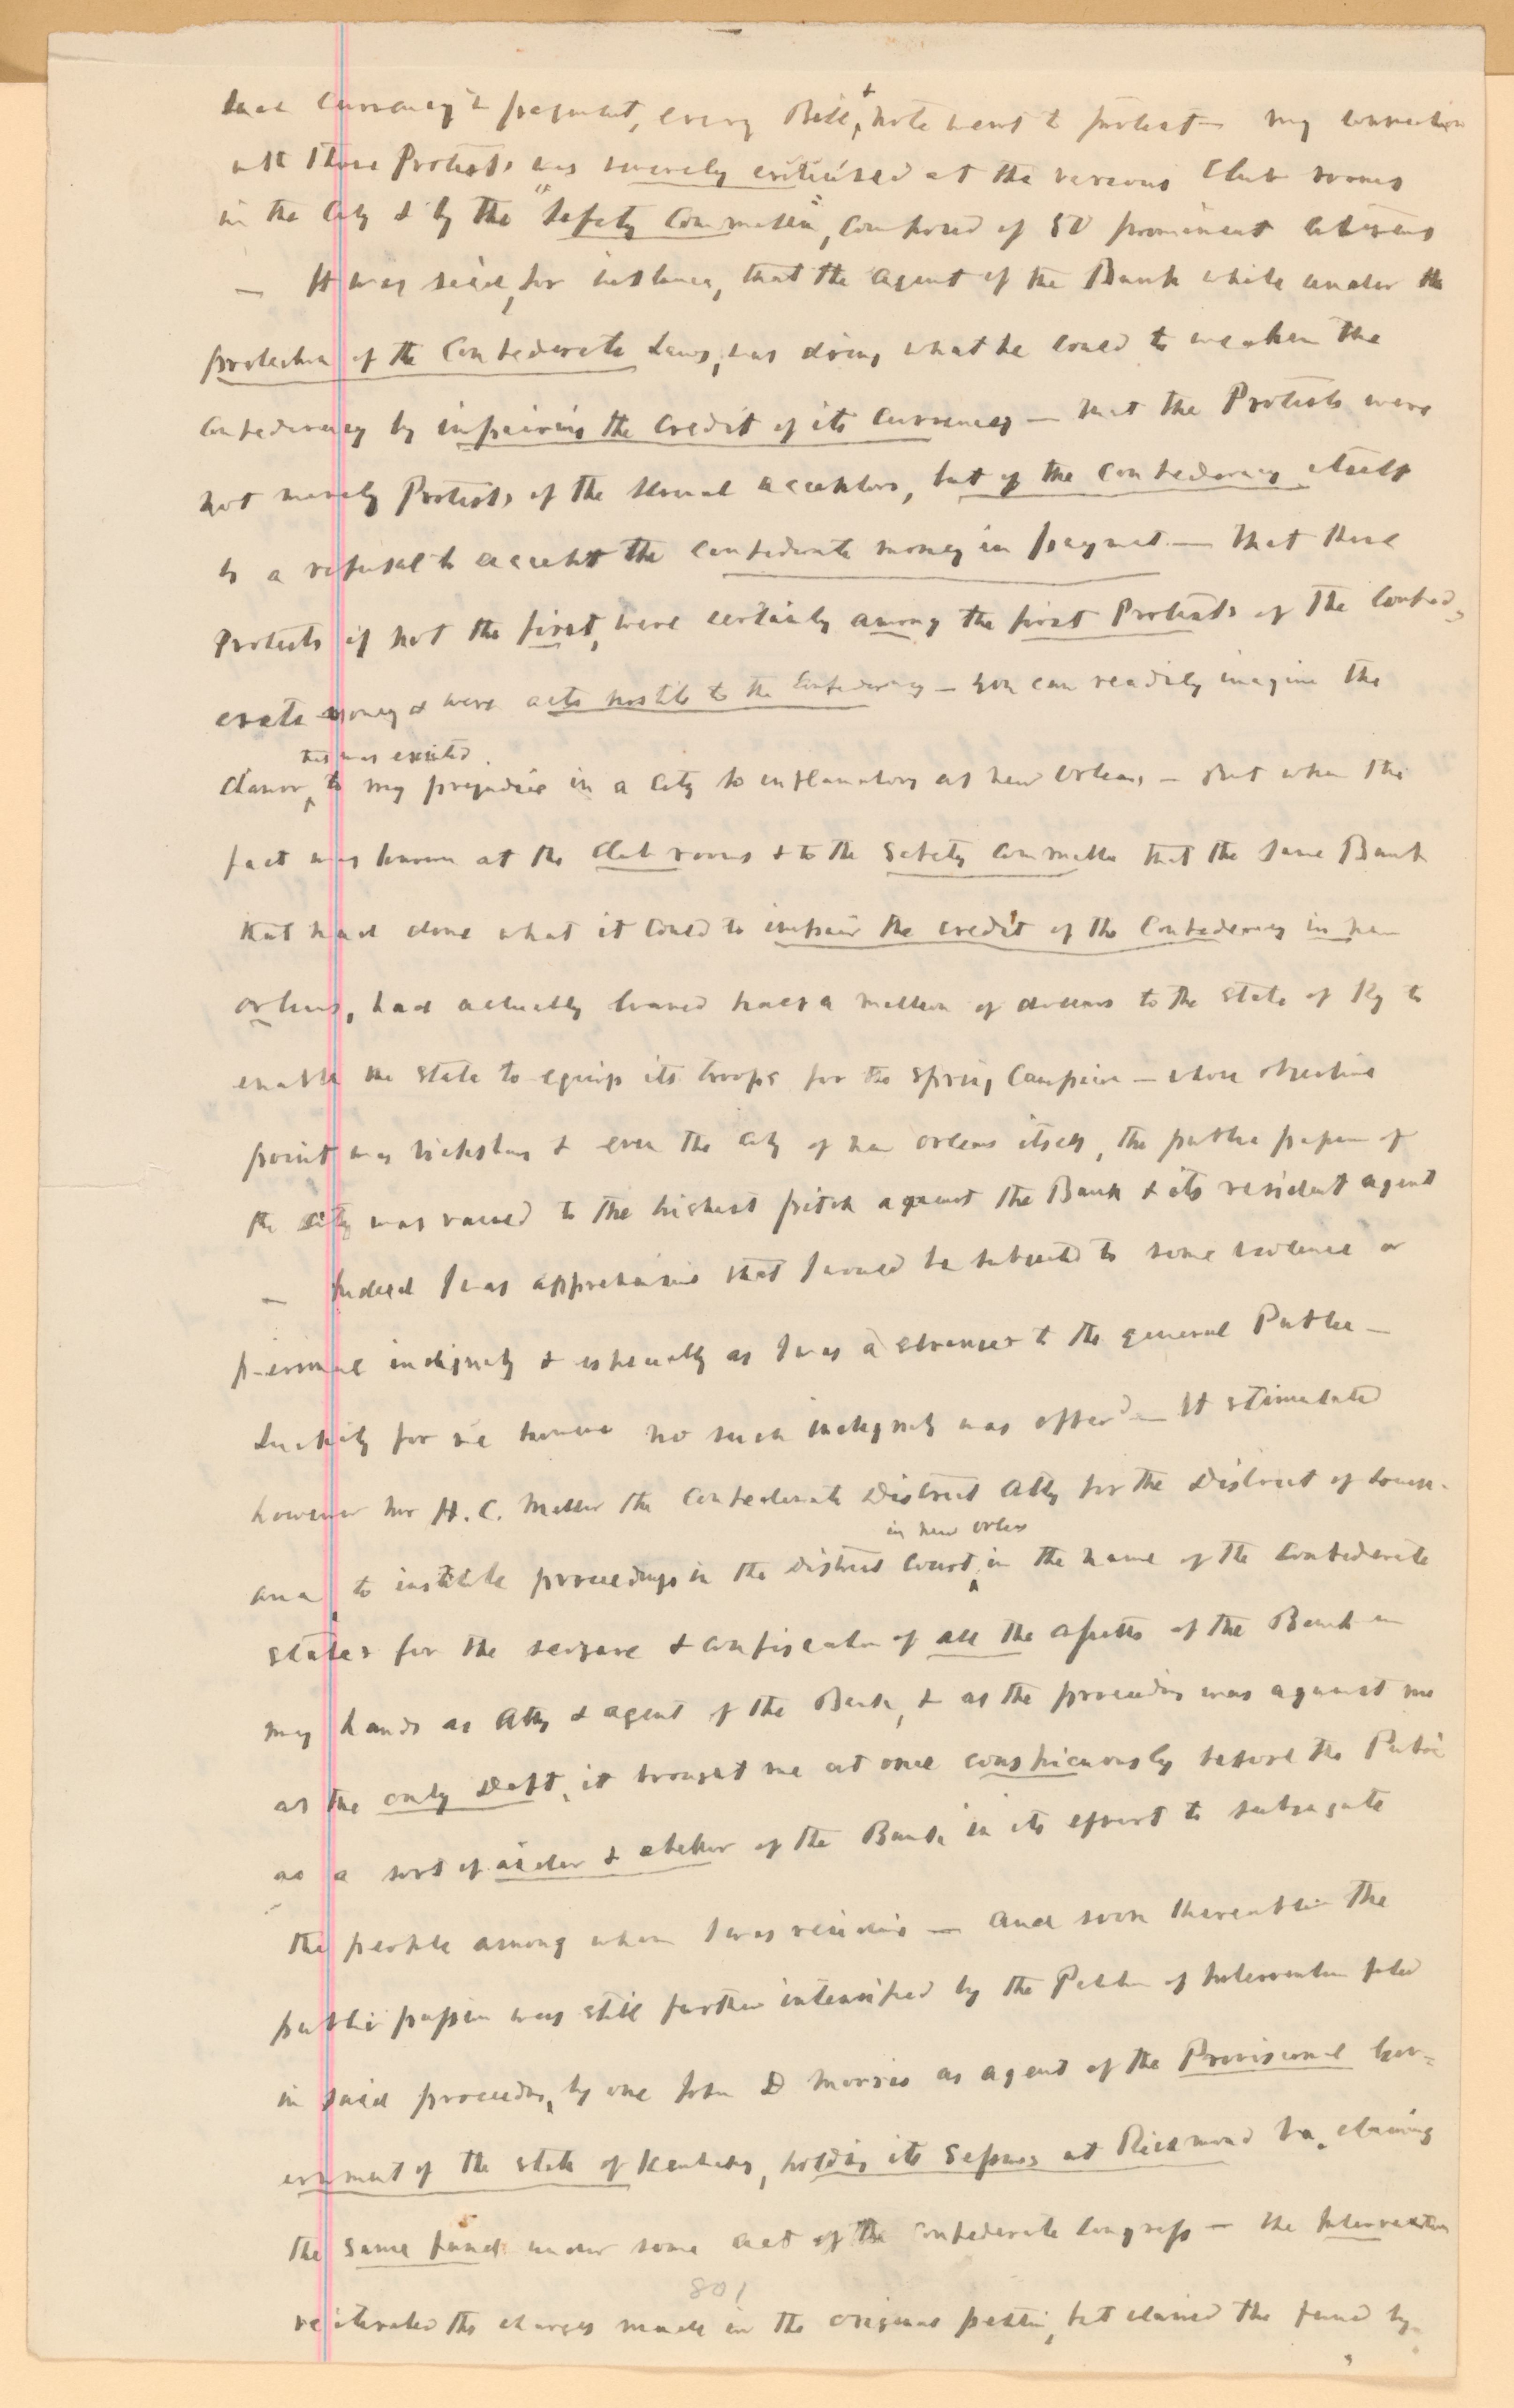 that currency in payment, every Bill & note went to protest — my connection
with those Protests was severely criticised at the various Club rooms
in the City & by the "Safety Committee", composed of 50 prominent citizens
— It was said, for instance, that the agent of the Bank while under the
protection of the Confederate Laws, was doing what he could to weaken the
Confederacy by impairing the credit of its currency — that the Protests were
not merely Protests of the several acceptors, but of the Confederacy itself
by a refusal to accept the Confederate money in payment — that these
Protests if not the first, were certainly among the first Protests of the Confed-
erate money & were acts hostile to the Confederacy — you can readily imagine the
that was excited
clamor, to my prejudice in a City so inflamatory as New Orleans — But when the
fact was known at the Club rooms & to the Safety Committee that the same Bank
that had done what it could to impair the credit of the Confederacy in New
Orleans, had actually loaned half a million of dollars to the State of Ky to
enable the State to equip its troops for the Spring Campaign — whose objective
point was Vicksburg & even the City of New Orleans itself, the public passion of
the city was raised to the highest pitch against the Bank & its resident agent
— Indeed I was apprehensive that I would be subjected to some violence or
personal indignity & especially as I was a stranger to the general Public —
Luckily for me however no such indignity was offerd — It stimulated
however Mr H. C. Miller the Confederate District Atty for the District of Louisi-
in New Orleans
ana, to institute proceedings in the District Court, in the name of the Confederate
States for the seizure & confiscation of all the assetts of the Bank in
my hands as Atty & agent of the Bank, & as the proceeding was against me
as the only Deft, it brought me at once conspicuously before the Public
as a sort of aider & abettor of the Bank in its effort to subjugate
the people among whom I was residing — and soon thereafter the
public passion was still further intensified by the Petition of Intervention filed
in said proceeding, by one John D Morris as agent of the Provisional Gov-
ernment of the State of Kentucky, holding its Sessions at Richmond Va, claiming
the same fund under some act of the Confederate Congress — the Intervention
reiterated the charges made in the original petition, but claimed the fund by
801